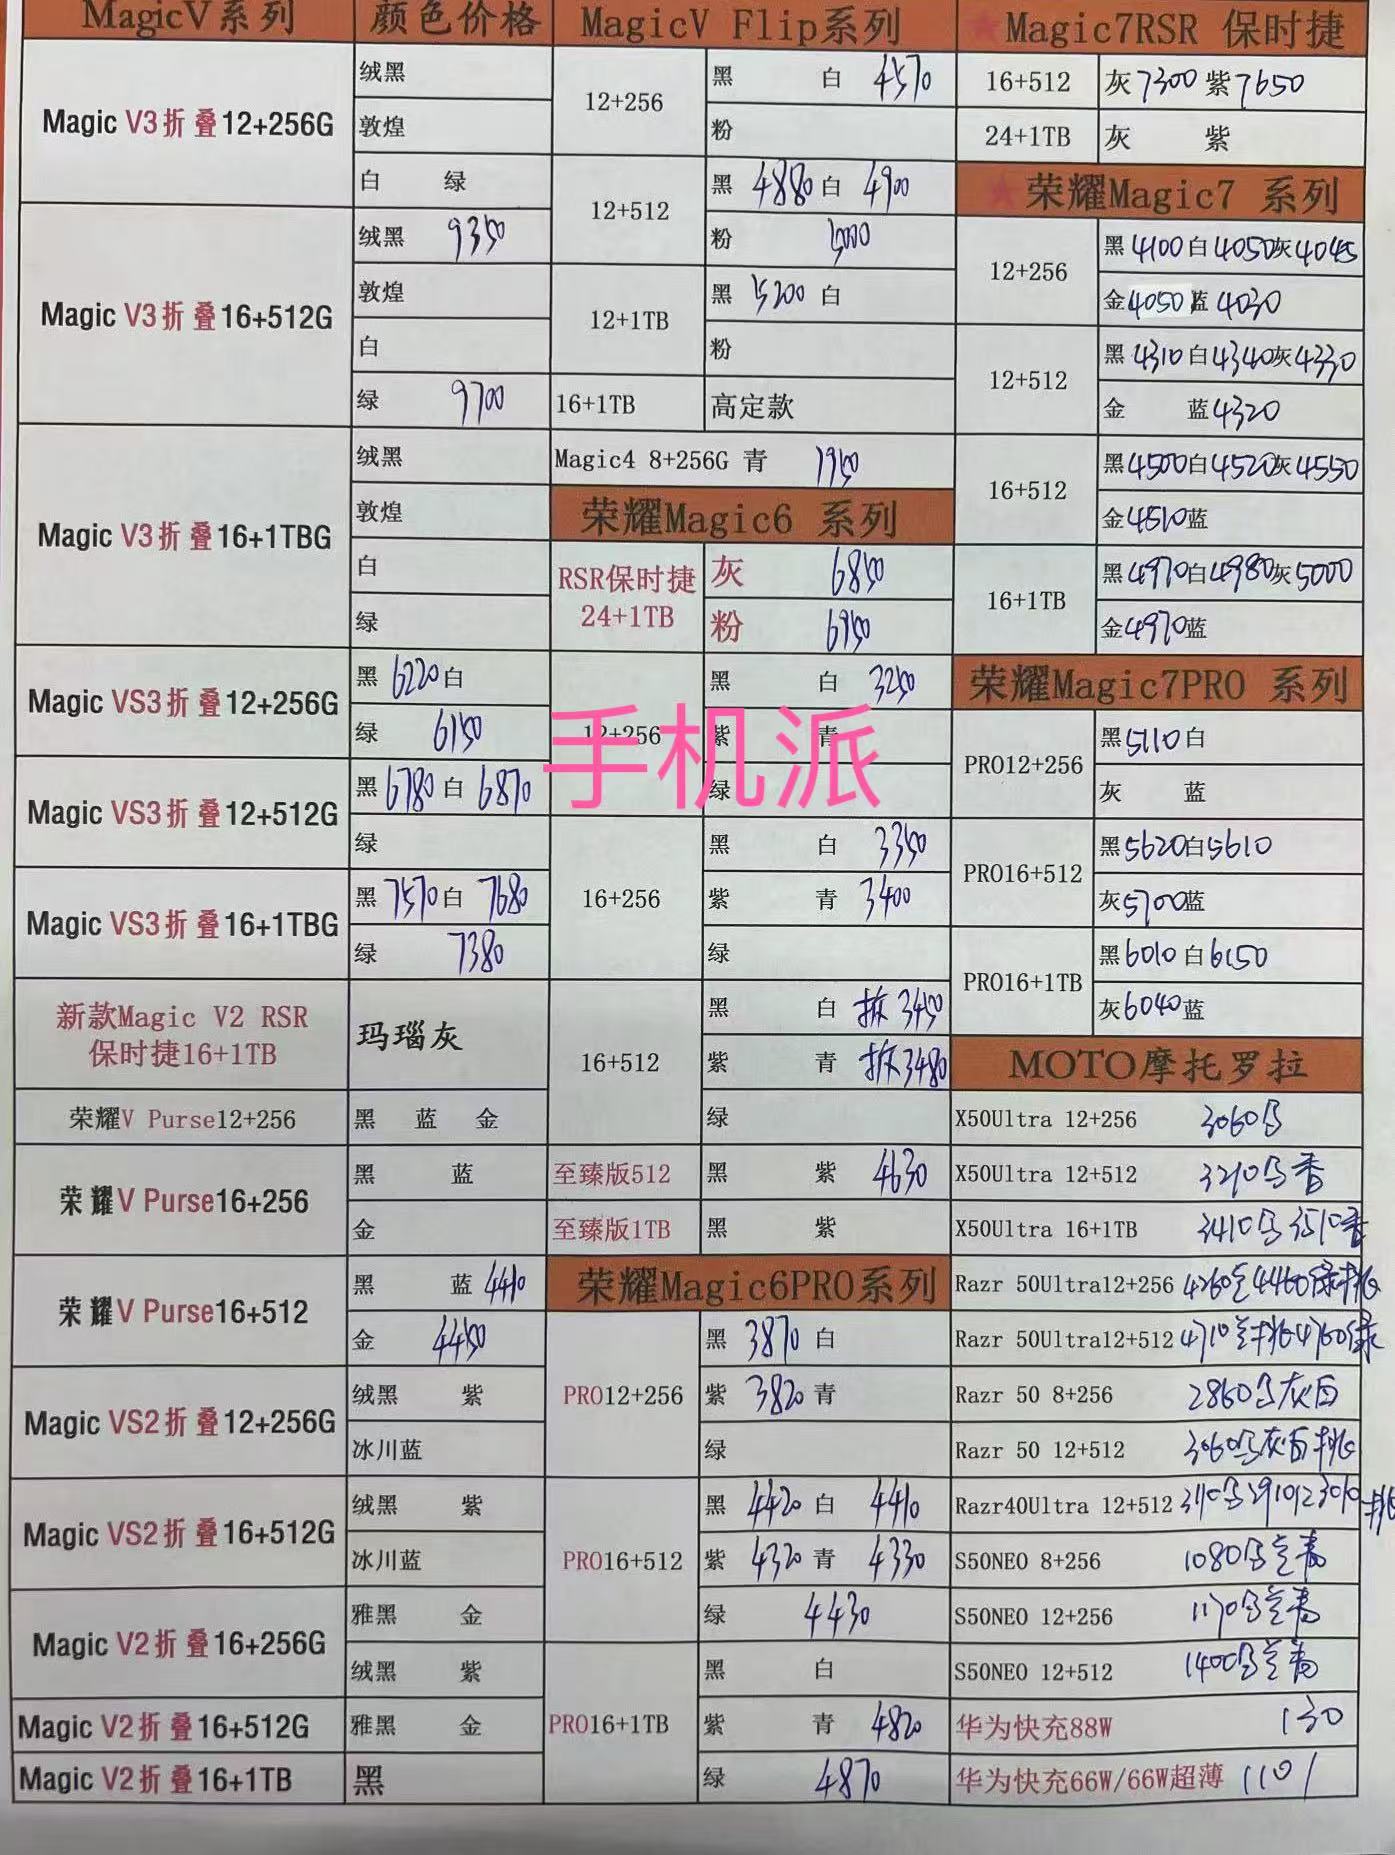 MagicV系列 颜色价格
Magic V3折叠12+256G
绒黑
敦煌
白 绿
Magic V3折叠16+512G
绒黑 9350
敦煌
白
绿 9700
Magic V3折叠16+1TBG
绒黑
敦煌
白
绿
Magic VS3折叠12+256G
黑 6220 白
绿 6150
Magic VS3折叠12+512G
黑 6780 白 6870
绿
Magic VS3折叠16+1TBG
黑 7570 白 7680
绿 7380
新款Magic V2 RSR
保时捷16+1TB
玛瑙灰
荣耀V Purse12+256
黑 蓝 金
荣耀V Purse16+256
黑 蓝
金
荣耀V Purse16+512
黑 蓝 4410
金 4450
Magic VS2折叠12+256G
绒黑 紫
冰川蓝
Magic VS2折叠16+512G
绒黑 紫
冰川蓝
Magic V2折叠16+256G
雅黑 金
绒黑 紫
Magic V2折叠16+512G
雅黑 金
Magic V2折叠16+1TB
黑
MagicV Flip系列
12+256
黑 白 4570
粉
12+512
黑 4880 白 4900
粉 5000
12+1TB
黑 5200 白
粉
16+1TB 高定款
Magic4 8+256G 青 1950
荣耀Magic6 系列
RSR保时捷
24+1TB
灰 6850
粉 6950
12+256
黑 白 3250
紫 青
绿
手机派
16+256
黑 白 3350
紫 青 3400
绿
16+512
黑 白 拆3450
紫 青 拆3480
绿
至臻版512 黑 紫 4630
至臻版1TB 黑 紫
荣耀Magic6PRO系列
PRO12+256
黑 3870 白
紫 3820 青
绿
PRO16+512
黑 4420 白 4410
紫 4320 青 4330
绿 4430
PRO16+1TB
黑 白
紫 青 4820
绿 4870
★Magic7RSR 保时捷
16+512 灰7300 紫7650
24+1TB 灰 紫
★荣耀Magic7 系列
12+256
黑4100白4050灰4045
金4050蓝4030
12+512
黑4310白4340灰4330
金 蓝4320
16+512
黑4500白4520灰4550
金4510蓝
16+1TB
黑4970白4980灰5000
金4970蓝
荣耀Magic7PRO 系列
PRO12+256
黑5110白
灰 蓝
PRO16+512
黑5620白5610
灰5700蓝
PRO16+1TB
黑6010白6150
灰6040蓝
MOTO摩托罗拉
X50Ultra 12+256 3060
X50Ultra 12+512 3210
X50Ultra 16+1TB 3410 3510
Razr 50Ultra12+256 4260 4460绿
Razr 50Ultra12+512 4710 4760绿
Razr 50 8+256 2860 灰白
Razr 50 12+512 3060 灰白
Razr40Ultra 12+512
S50NEO 8+256 1080
S50NEO 12+256 1170
S50NEO 12+512 1400
华为快充88W 130
华为快充66W/66W超薄 110